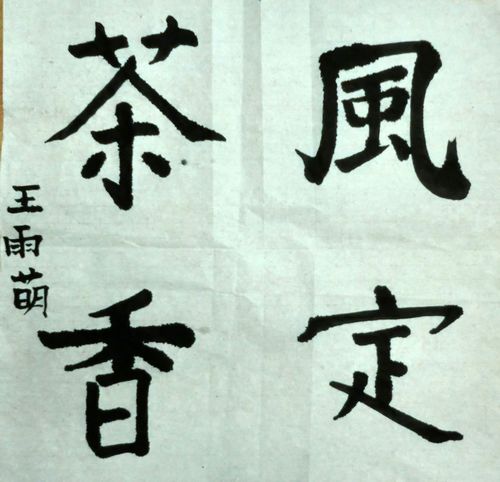 風定
茶香
王雨萌